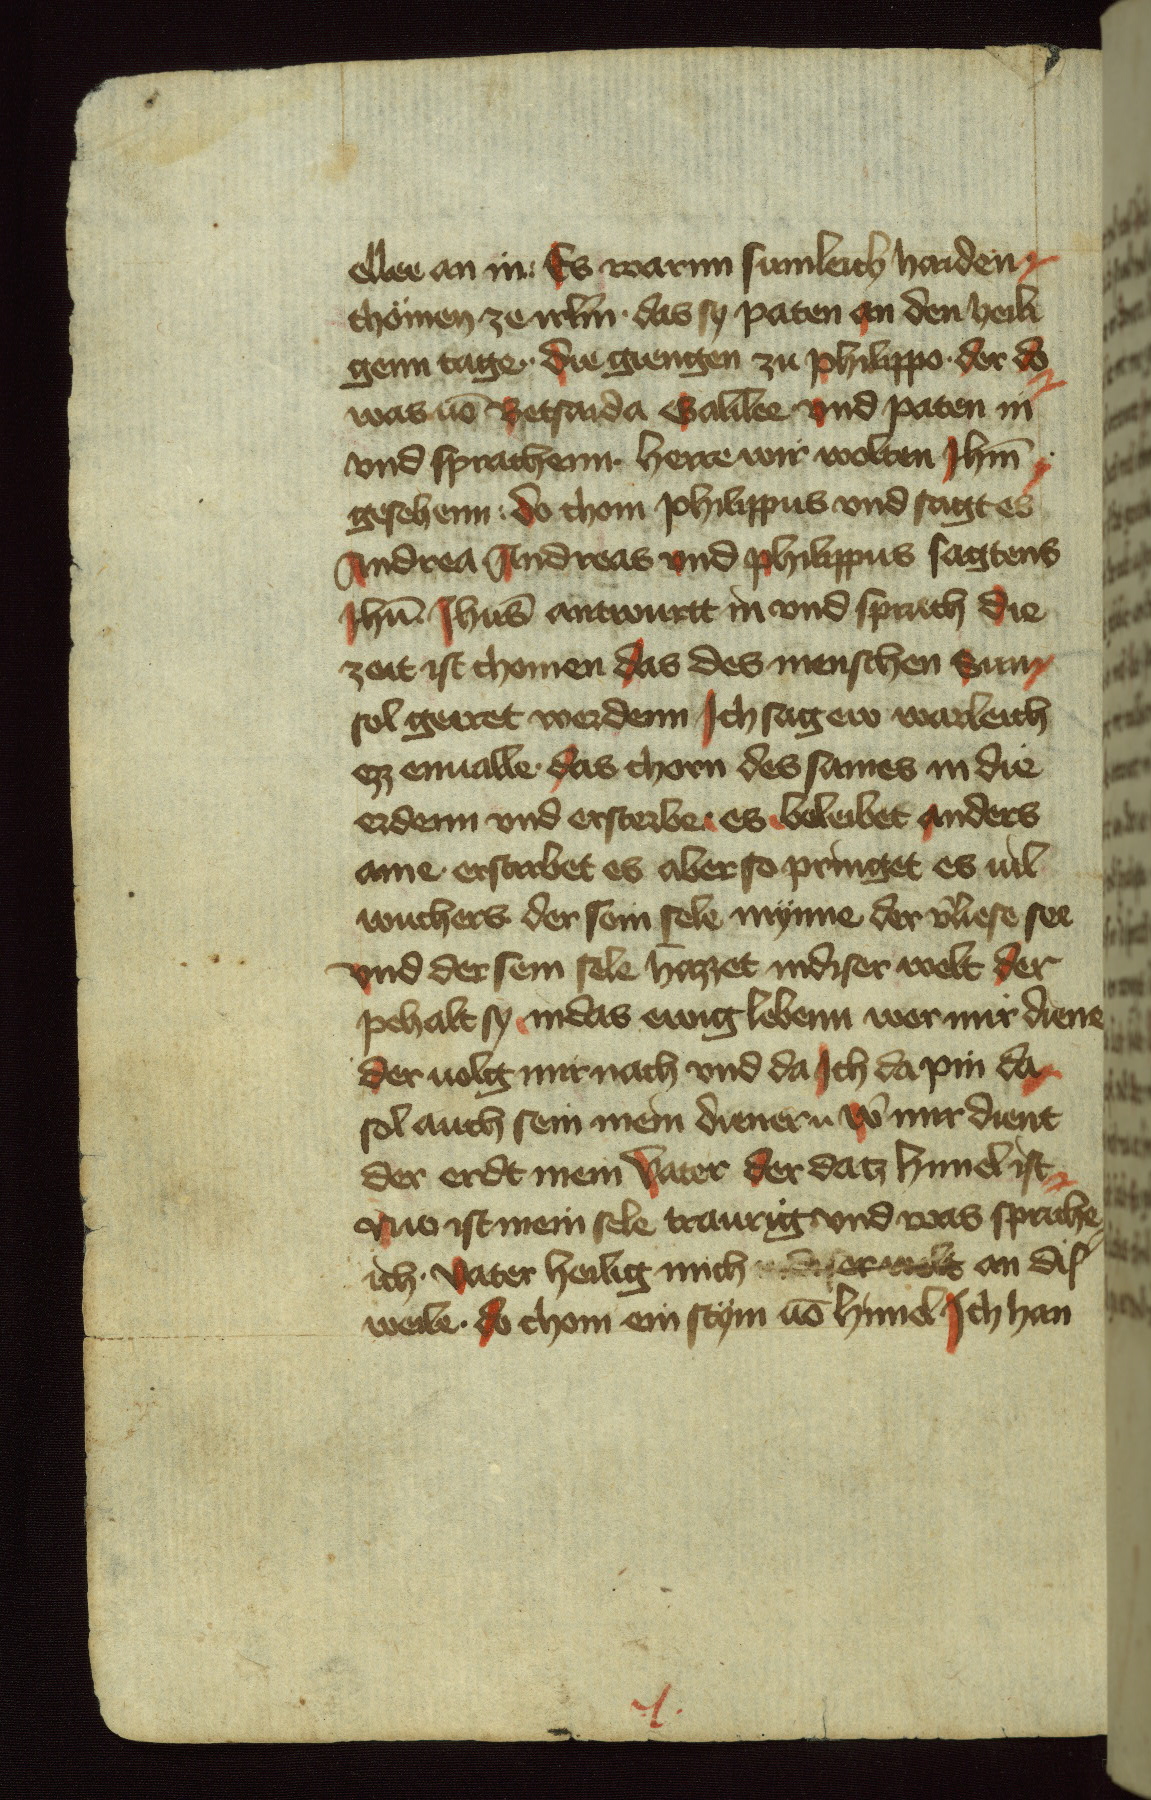 ellee an in: Es warnn sumleich haiden
chömen ze irlm̄· das sy paten an den heili
genn tage·· die giengen zu philippo· der do
was uō Betsaida Galilee vnd paten in
vnd sprachenn· herre wir wolten Jhm̄
gesehenn: do chom philippus vnd sagt es
Andrea Andreas vnd philippus sagtens
Jhū· Jhus̄ antwurtt in vnd sprach die
zeit ist chomen das des menschen Sun
sol geeret werdenn Ich sag ew warleich
ezz enualle· das chorn des sames in die
erdenn vnd ersterbe· es beleibet anders
aine· erstirbet es aber so pringet es uil
wuchers der sein sele mÿnne der v̄liese see
vnd der sein sele hazzet in diser welt der
pehalt sy in das ewig lebenn wer mir diene
der uolg mir nach vnd da Ich da pin da
sol auch sein mein diener·· w̄ mir dient
der erdt mein Vater der datz himel ist
Nuo ist mein sele traurig vnd was spriche
ich· Vater heilig mich an dis̄
weile· do chom ein stÿm uō himel Ich han